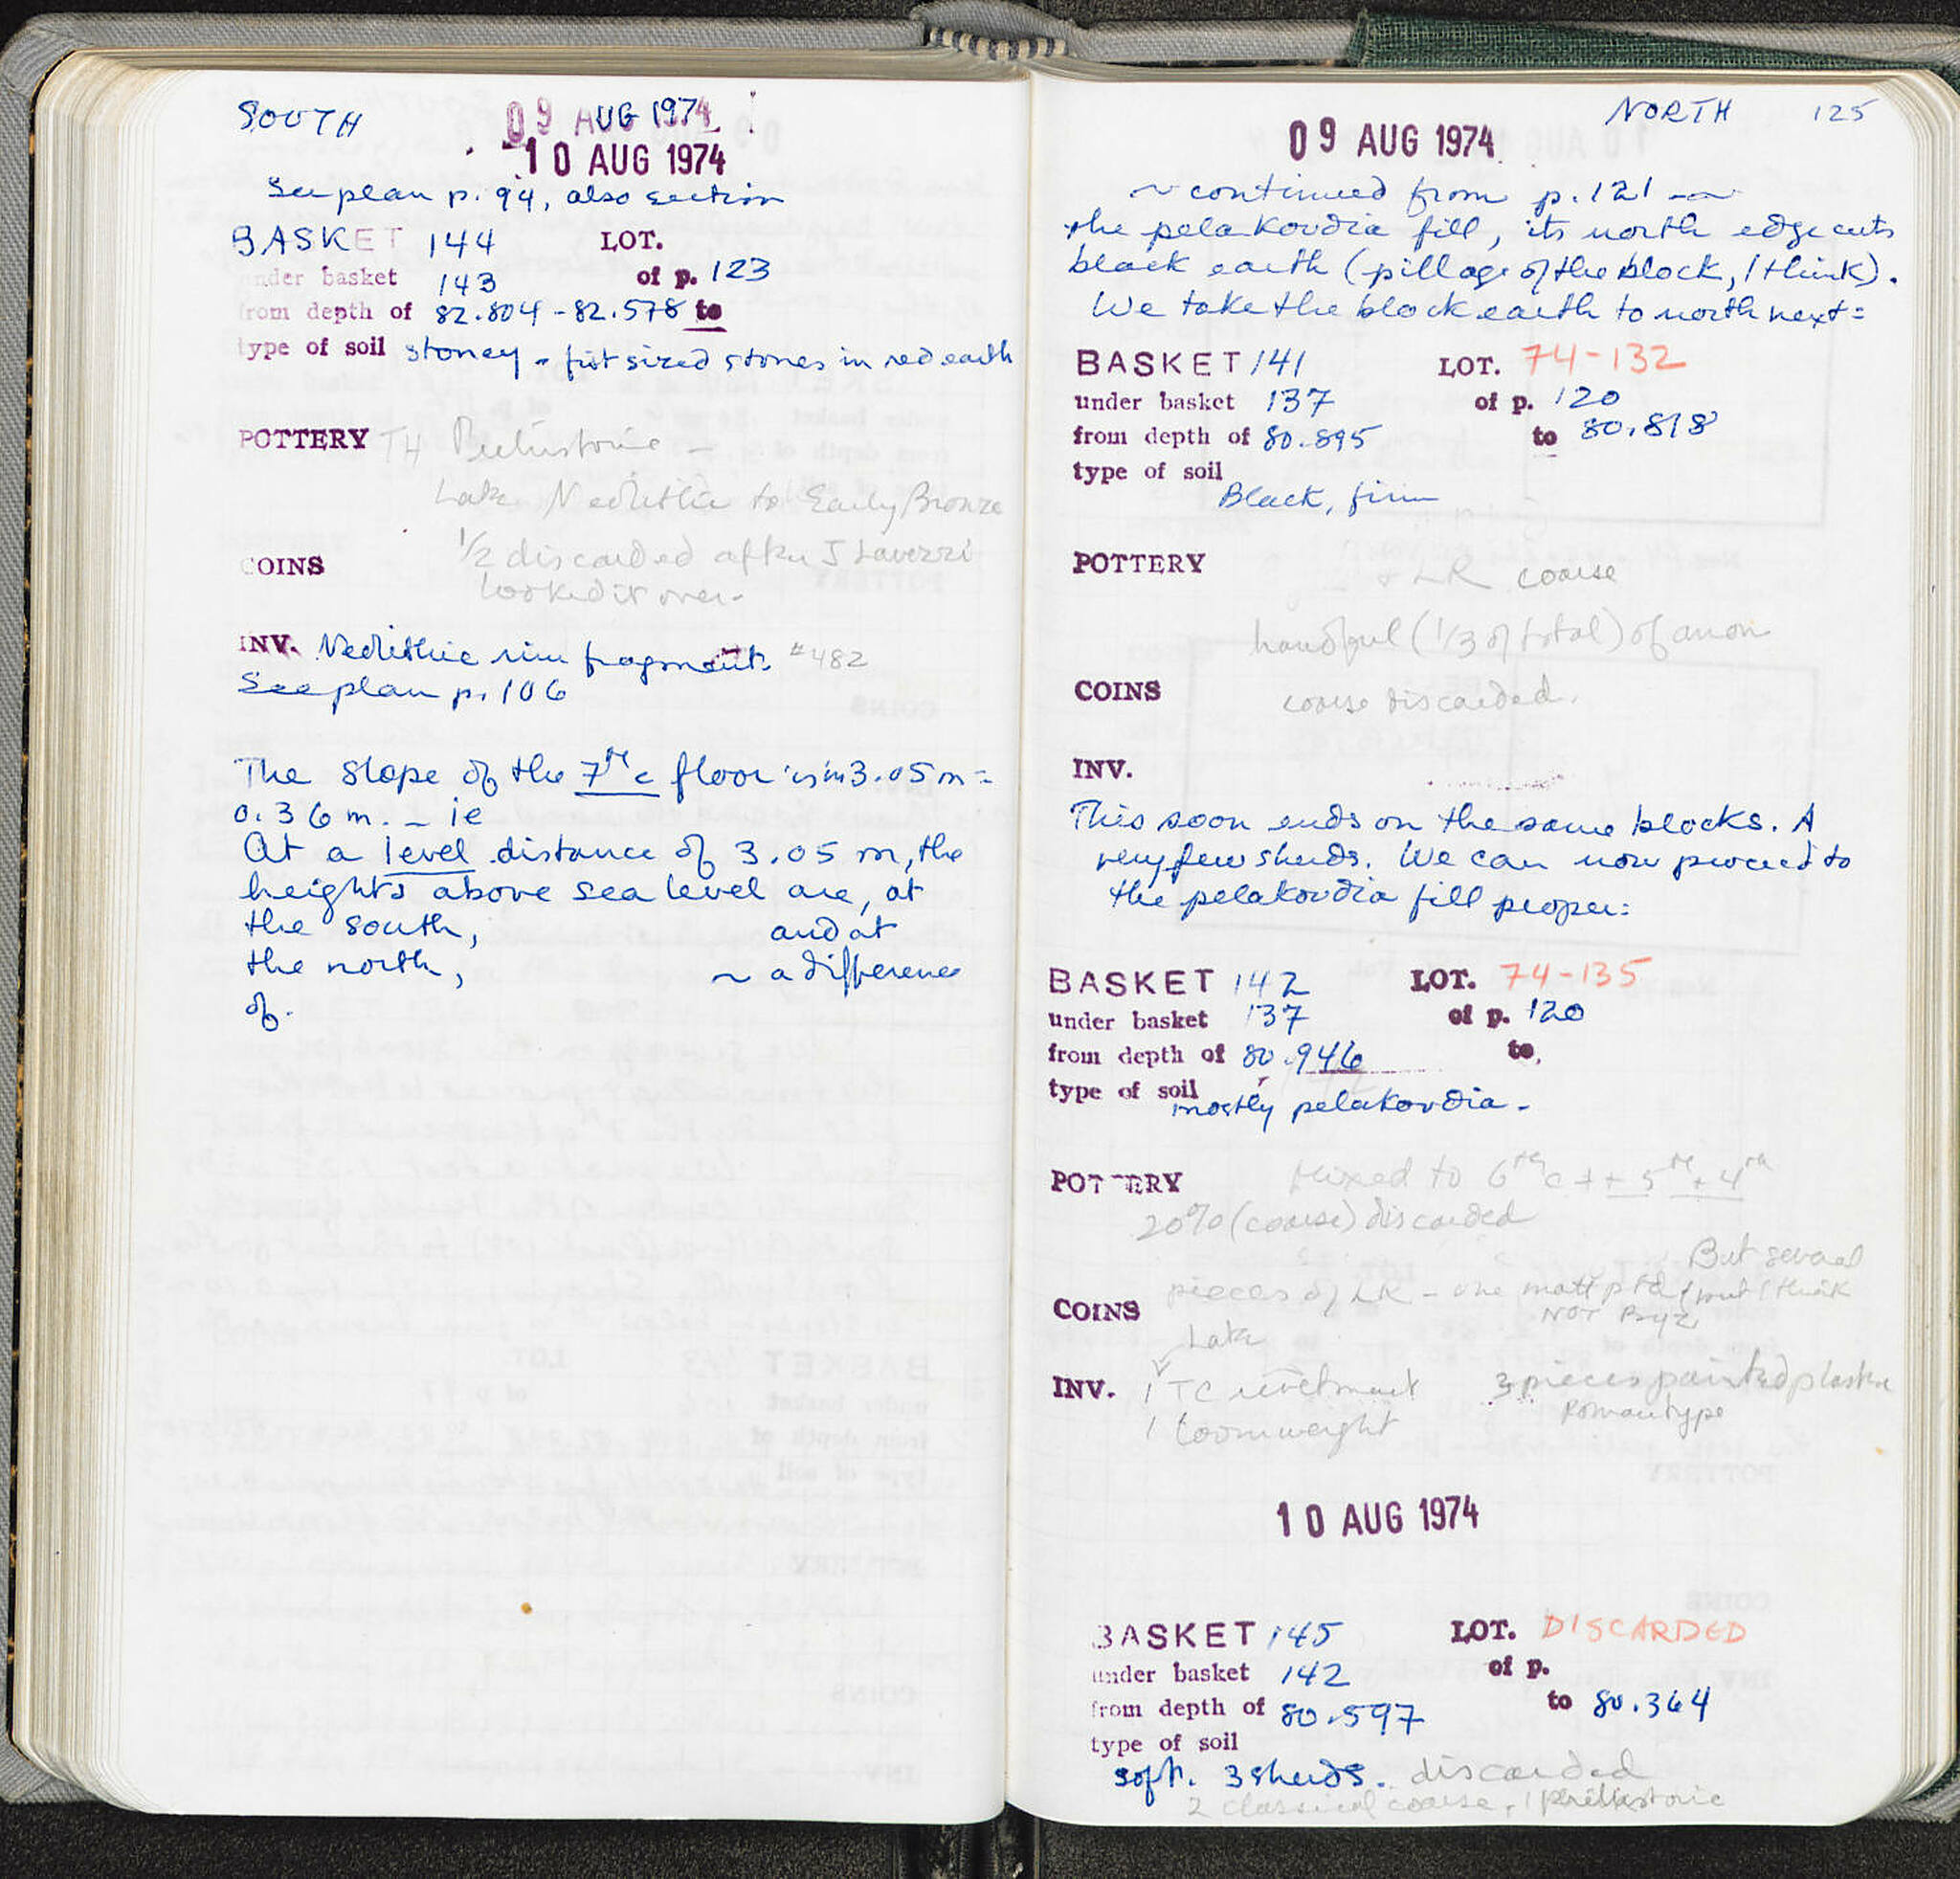 SOUTH
09 AUG 1974
10 AUG 1974
See plan p. 94, also section
BASKET 144 LOT.
under basket 143 of p. 123
from depth of 82.804 - 82.578 to
type of soil stoney - fist sized stones in red earth
POTTERY TH Prehistoric -
Late Neolithic to Early Bronze
1/2 discarded after J Lavezzi
COINS
looked it over.
INV. Neolithic rim fragments #482
See plan p. 106
The slope of the 7th c floor is in 3.05 m =
0.36 m. - ie
At a level distance of 3.05 m, the
heights above sea level are, at
the south, and at
the north, ~ a difference
of.
NORTH 125
09 AUG 1974
~ continued from p. 121 ~
the pelakovdia fill, its north edge cuts
black earth (pillage of the block, I think).
We take the black earth to north next:
BASKET 141 LOT. 74-132
under basket 137 of p. 120
from depth of 80.895 to 80.818
type of soil
Black, firm
POTTERY
+ LR coarse
handful (1/3 of total) of anon
COINS
coarse discarded.
INV.
This soon ends on the same blocks. A
very few sherds. We can now proceed to
the pelakovdia fill proper:
BASKET 142 LOT. 74-135
under basket 137 of p. 120
from depth of 80.946 to
type of soil
mostly pelakovdia -
POTTERY Mixed to 6th c + + 5th + 4th
20% (coarse) discarded
But several
pieces of LR - one matt ptd but I think
COINS NOT Byz
Late
INV. 1 TC revetment 3 pieces painted plaster
1 loomweight Roman type
10 AUG 1974
BASKET 145 LOT. DISCARDED
under basket 142 of p.
from depth of 80.597 to 80.364
type of soil
soft. 3 sherds. discarded
2 classical coarse, 1 prehistoric